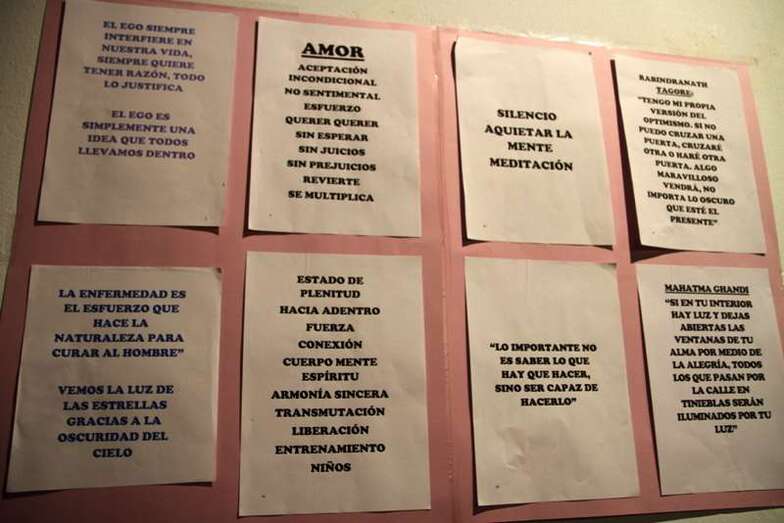 EL EGO SIEMPRE
INTERFIERE EN
NUESTRA VIDA,
SIEMPRE QUIERE
TENER RAZÓN, TODO
LO JUSTIFICA
EL EGO ES
SIMPLEMENTE UNA
IDEA QUE TODOS
LLEVAMOS DENTRO
AMOR
ACEPTACIÓN
INCONDICIONAL
NO SENTIMENTAL
ESFUERZO
QUERER QUERER
SIN ESPERAR
SIN JUICIOS
SIN PREJUICIOS
REVIERTE
SE MULTIPLICA
SILENCIO
AQUIETAR LA
MENTE
MEDITACIÓN
RABINDRANATH
TAGORE:
"TENGO MI PROPIA
VERSIÓN DEL
OPTIMISMO. SI NO
PUEDO CRUZAR UNA
PUERTA, CRUZARÉ
OTRA O HARÉ OTRA
PUERTA. ALGO
MARAVILLOSO
VENDRÁ, NO
IMPORTA LO OSCURO
QUE ESTÉ EL
PRESENTE"
LA ENFERMEDAD ES
EL ESFUERZO QUE
HACE LA
NATURALEZA PARA
CURAR AL HOMBRE"
VEMOS LA LUZ DE
LAS ESTRELLAS
GRACIAS A LA
OSCURIDAD DEL
CIELO
ESTADO DE
PLENITUD
HACIA ADENTRO
FUERZA
CONEXIÓN
CUERPO MENTE
ESPÍRITU
ARMONÍA SINCERA
TRANSMUTACIÓN
LIBERACIÓN
ENTRENAMIENTO
NIÑOS
"LO IMPORTANTE NO
ES SABER LO QUE
HAY QUE HACER,
SINO SER CAPAZ DE
HACERLO"
MAHATMA GHANDI
"SI EN TU INTERIOR
HAY LUZ Y DEJAS
ABIERTAS LAS
VENTANAS DE TU
ALMA POR MEDIO DE
LA ALEGRÍA, TODOS
LOS QUE PASAN POR
LA CALLE EN
TINIEBLAS SERÁN
ILUMINADOS POR TU
LUZ"